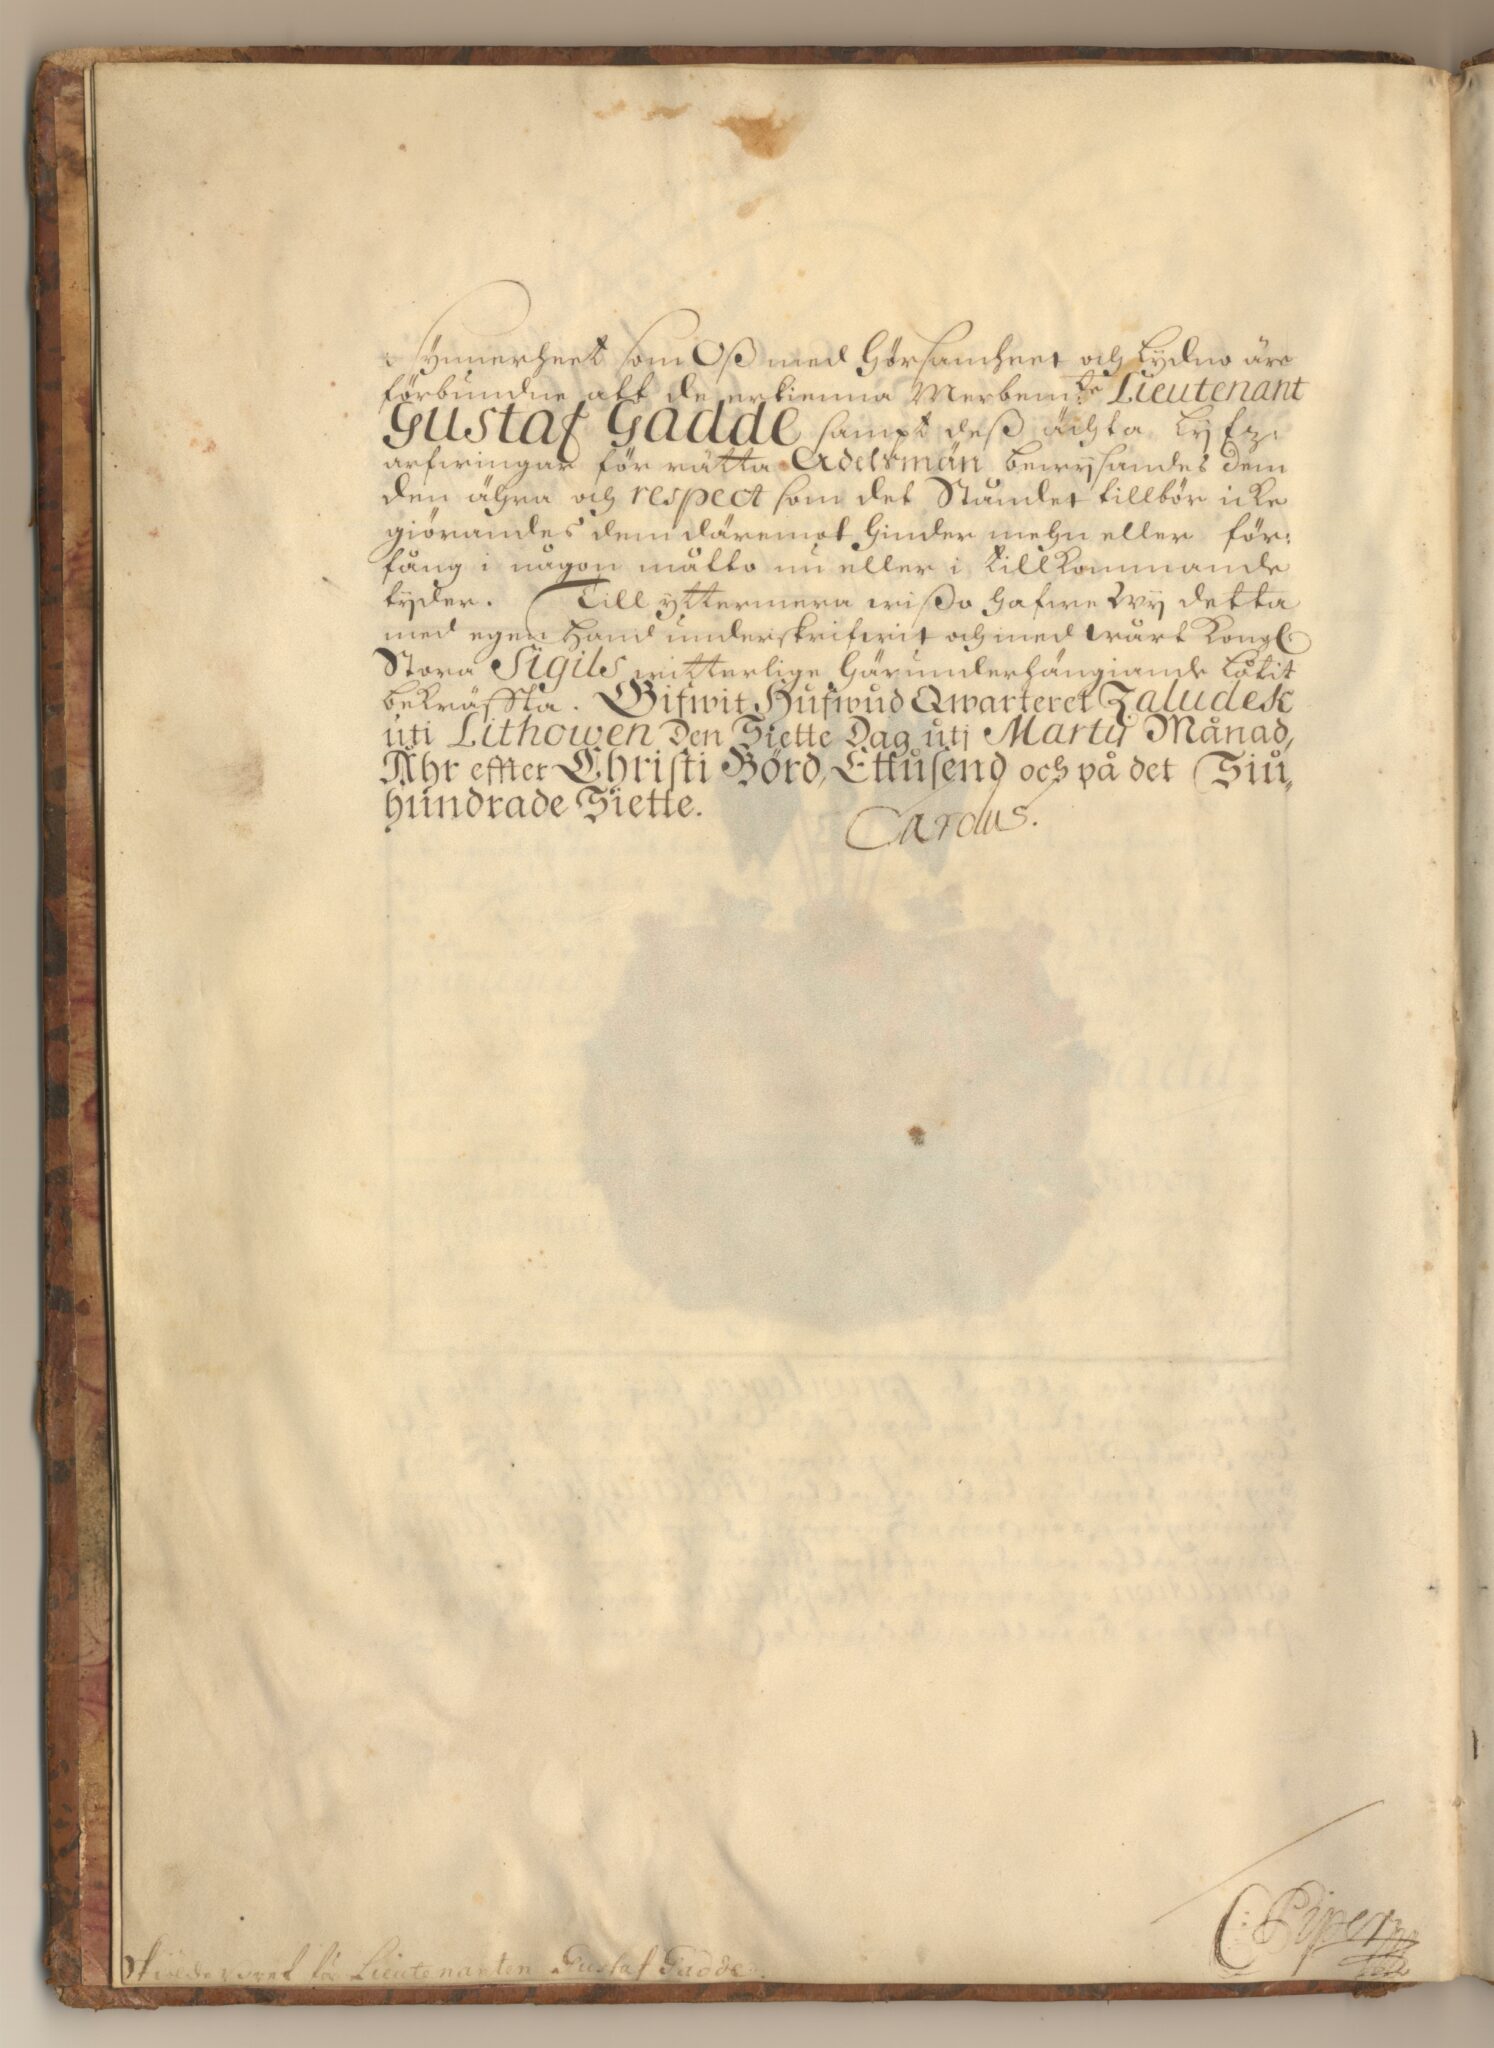 Synnerheet som Oß med Hörsamheet och Lydno äre
förbundne att de erkienna Merbem:te Lieutenant
Gustaf Gadde sampt deß ächta Lyfz:
arfwingar för rätta Adelsmän bewysandes dem
den ähra och respect som det Ståndet tillbör icke
giörandes dem däremot hinder mehn eller för:
fång i någon måtto nu eller i tillkommande
tyder. Till yttermera wißo hafwe Wy detta
med egen hand underskrifwit och med wårt Kongl
Stora Sigils witterlige härunderhängiande låtit
bekräffta. Gifwit Hufwud Qwarteret Zaludek
uti Lithowen Den Siette Dag utj Martij Månad,
Åhr effter Christi Börd, Ettusend och på det Siu„
hundrade Siette.
Carolus.
C: Piper
Skiöldebref för Lieutenanten Gustaf Gadde.